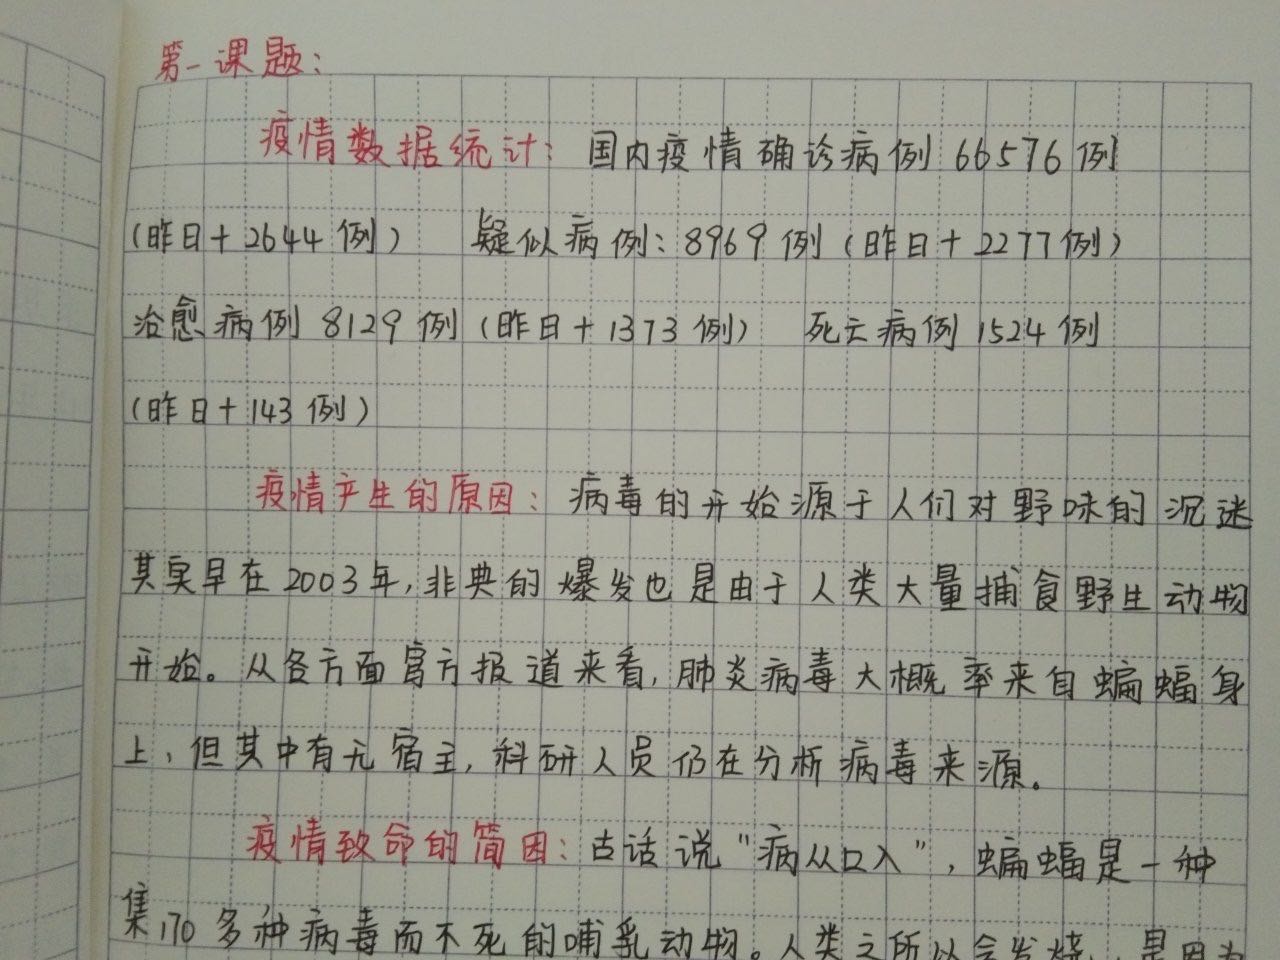 第一课题：
疫情数据统计：国内疫情确诊病例66576例
（昨日+2644例） 疑似病例：8969例（昨日+2277例）
治愈病例8129例（昨日+1373例） 死亡病例1524例
（昨日+143例）
疫情产生的原因：病毒的开始源于人们对野味的沉迷
其实早在2003年，非典的爆发也是由于人类大量捕食野生动物
开始。从各方面官方报道来看，肺炎病毒大概率来自蝙蝠身
上，但其中有无宿主，科研人员仍在分析病毒来源。
疫情致命的简因：古话说"病从口入"，蝙蝠是一种
集170多种病毒而不死的哺乳动物。人类之所以会发烧，是因为